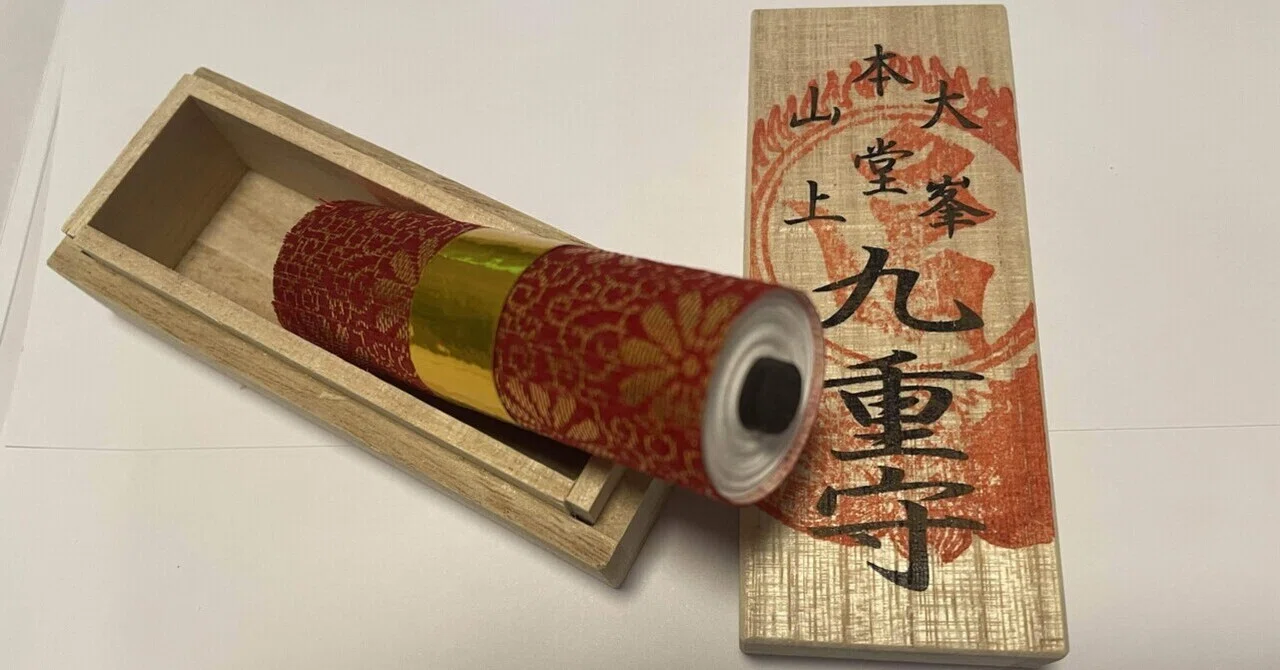 大峯
本堂
山上
九重守